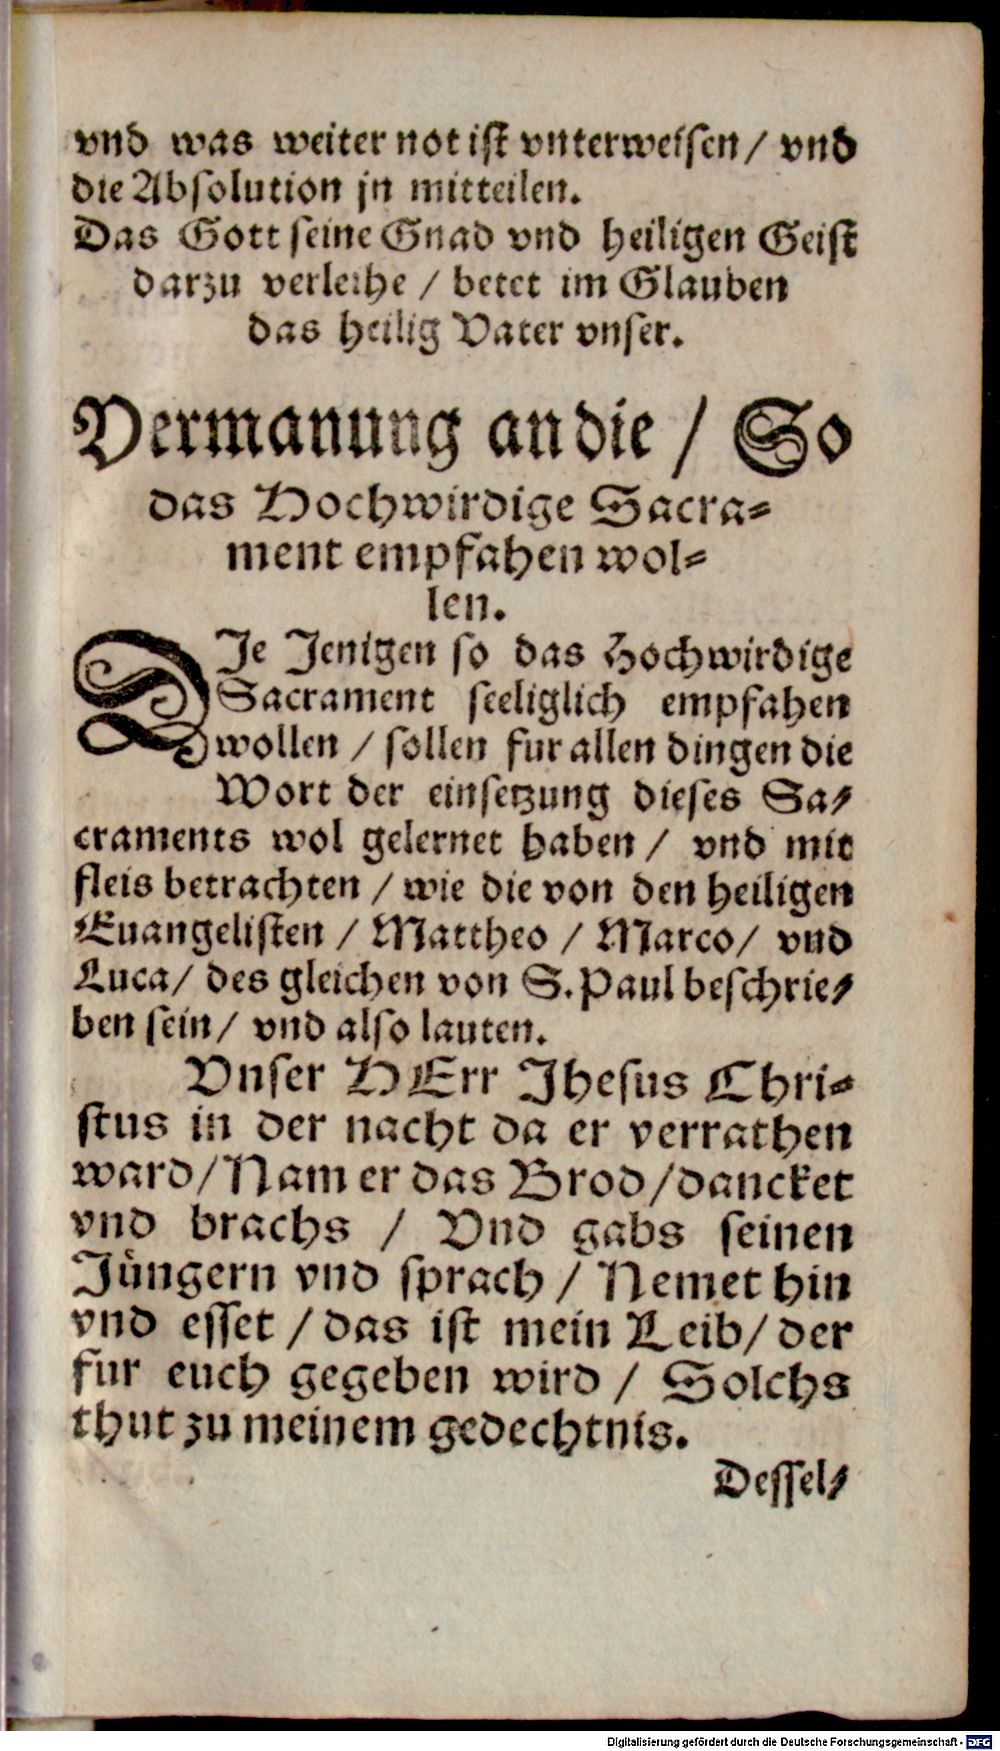 vnd was weiter not ist vnterweisen / vnd
die Absolution jn mitteilen.
Das Gott seine Gnad vnd heiligen Geist
darzu verleihe / betet im Glauben
das heilig Vater vnser.
Vermanung an die / So
das Hochwirdige Sacra-
ment empfahen wol-
len.
DJe Jenigen so das Hochwirdige
Sacrament seeliglich empfahen
wollen / sollen fur allen dingen die
Wort der einsetzung dieses Sa-
craments wol gelernet haben / vnd mit
fleis betrachten / wie die von den heiligen
Euangelisten / Mattheo / Marco / vnd
Luca / des gleichen von S. Paul beschrie-
ben sein / vnd also lauten.
Vnser HErr Jhesus Chri-
stus in der nacht da er verrathen
ward / Nam er das Brod / dancket
vnd brachs / Vnd gabs seinen
Jüngern vnd sprach / Nemet hin
vnd esset / das ist mein Leib / der
fur euch gegeben wird / Solchs
thut zu meinem gedechtnis.
Dessel-
Digitalisierung gefördert durch die Deutsche Forschungsgemeinschaft - DFG